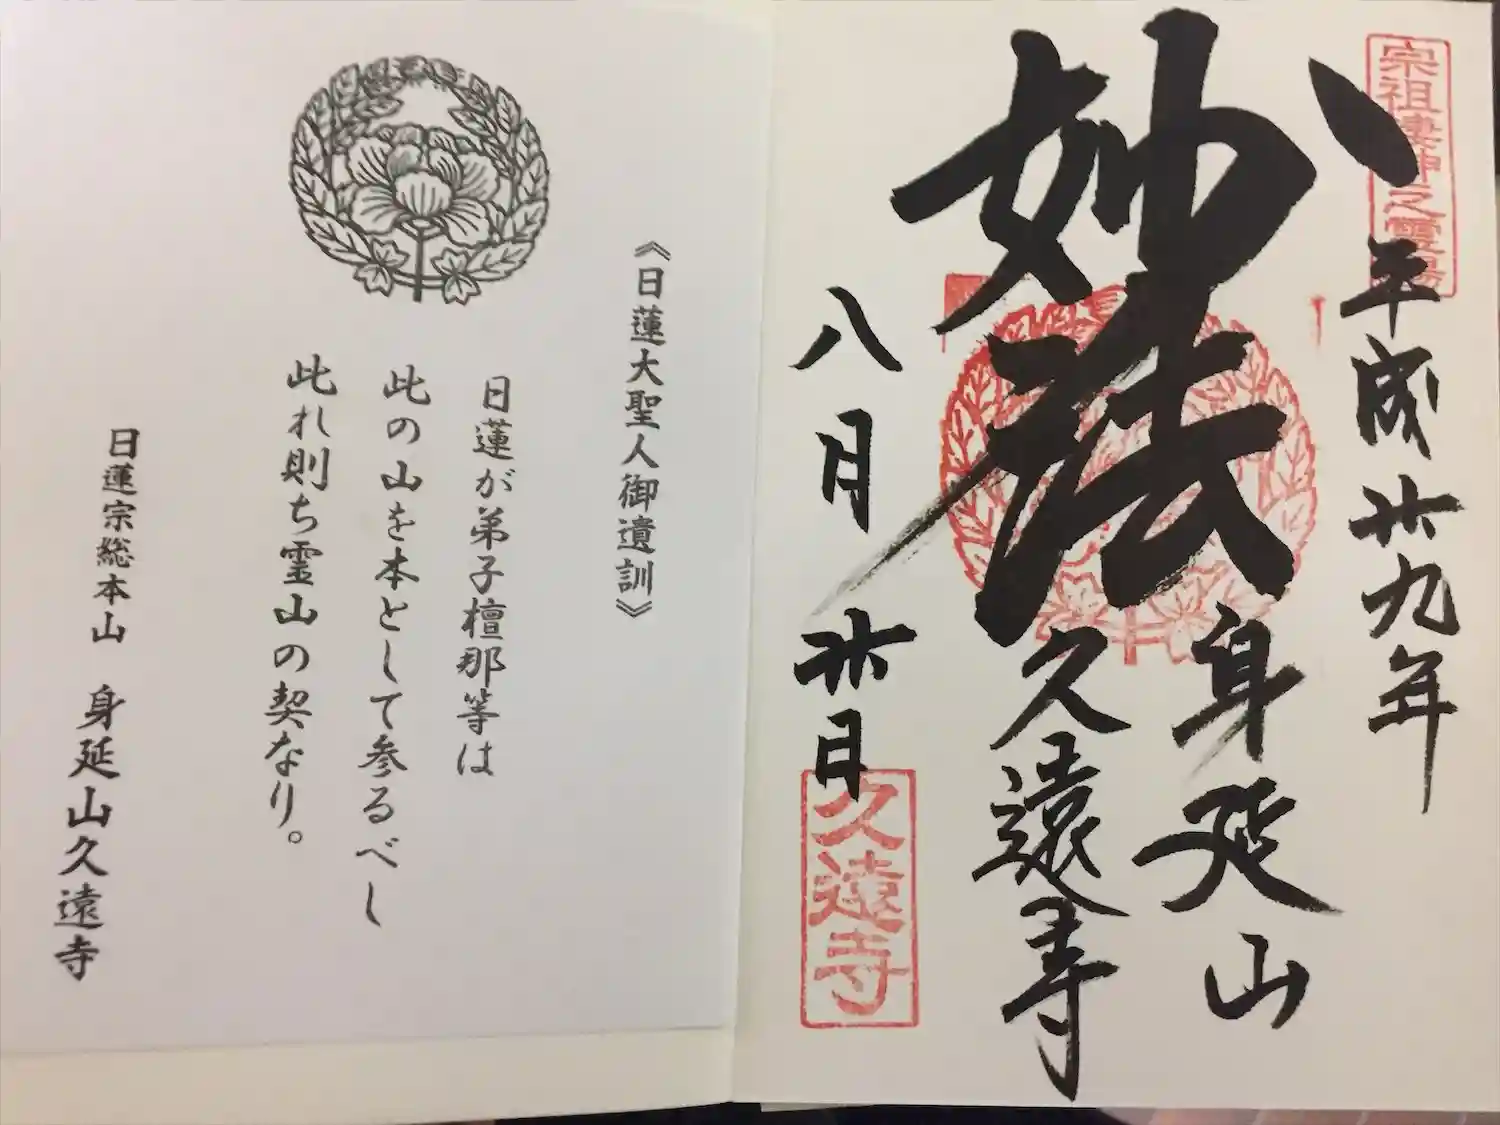 宗祖棲神之霊場
平成廿九年
妙法
身延山
久遠寺
八月廿日
久遠寺
《日蓮大聖人御遺訓》
日蓮が弟子檀那等は
此の山を本として参るべし
此れ則ち霊山の契なり。
日蓮宗総本山 身延山久遠寺